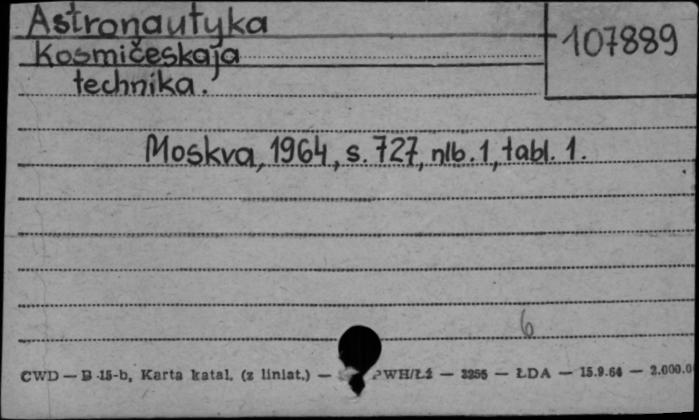 Astronautyka
107889
Kosmičeskaja
technika.
Moskva, 1964, s. 727, nlb. 1, tabl. 1.
6
CWD — B 15-b, Karta katal. (z liniat.) — PWH/Ł2 — 3256 — ŁDA — 15.9.64 — 2.000.0